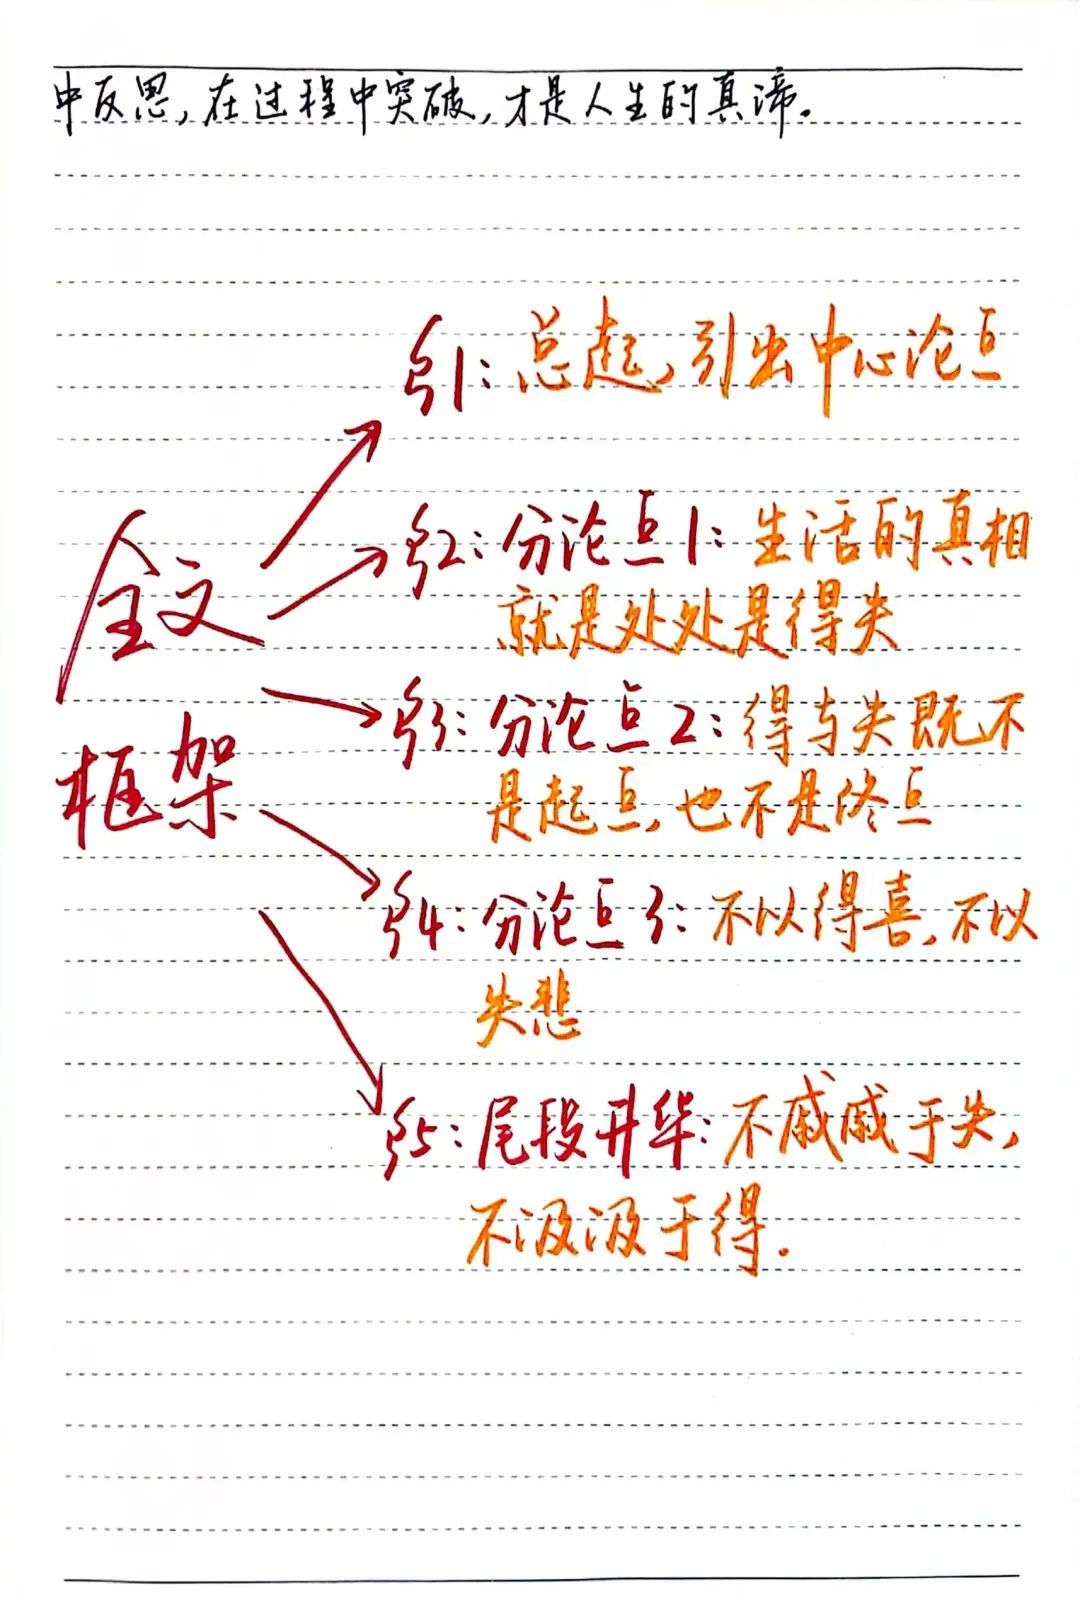 中反思，在过程中突破，才是人生的真谛。
P1：总起，引出中心论点
全文
框架
P2：分论点1：生活的真相
就是处处是得失
P3：分论点2：得与失既不
是起点，也不是终点
P4：分论点3：不以得喜，不以
失悲
P5：尾段升华：不戚戚于失，
不汲汲于得。